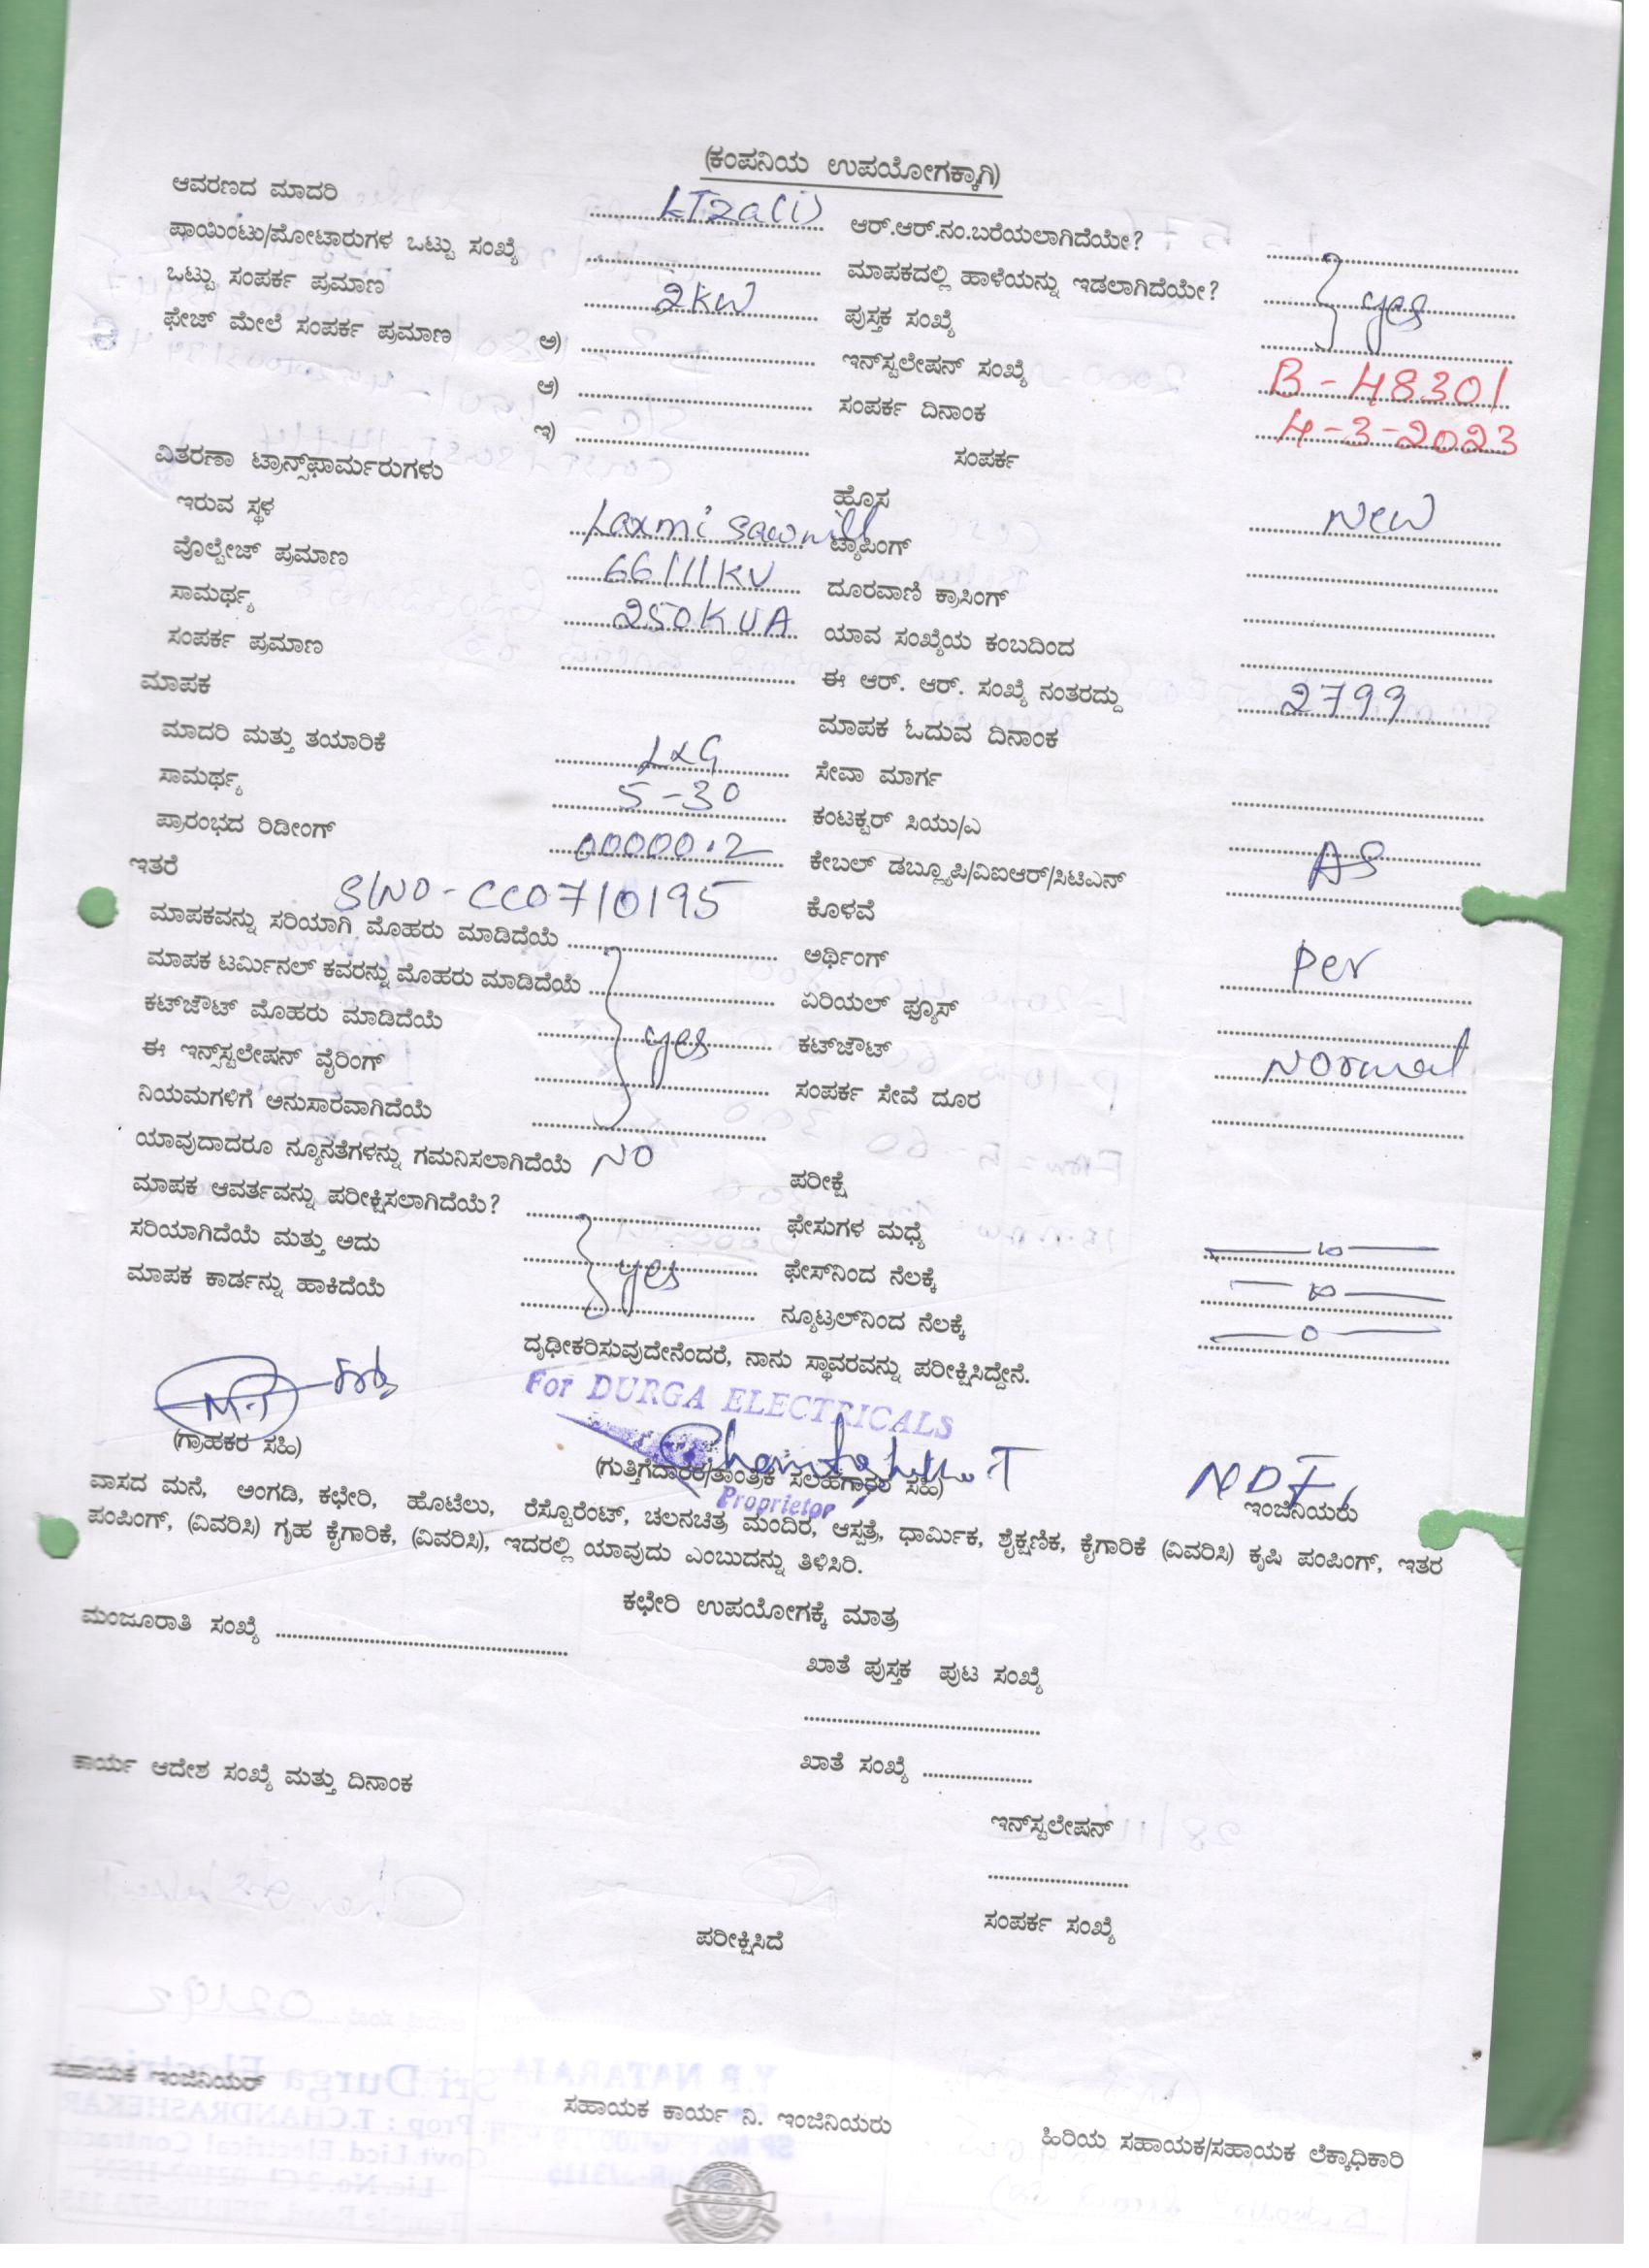 (ಕಂಪನಿಯ ಉಪಯೋಗಕ್ಕಾಗಿ)
ಆವರಣದ ಮಾದರಿ LT2a(i) ಆರ್.ಆರ್.ನಂ.ಬರೆಯಲಾಗಿದೆಯೇ?
ಪಾಯಿಂಟು/ಮೋಟಾರುಗಳ ಒಟ್ಟು ಸಂಖ್ಯೆ ಮಾಪಕದಲ್ಲಿ ಹಾಳೆಯನ್ನು ಇಡಲಾಗಿದೆಯೇ? yes
ಒಟ್ಟು ಸಂಪರ್ಕ ಪ್ರಮಾಣ 2KW ಪುಸ್ತಕ ಸಂಖ್ಯೆ
ಫೇಜ್ ಮೇಲೆ ಸಂಪರ್ಕ ಪ್ರಮಾಣ ಅ) ಇನ್‌ಸ್ಟಲೇಷನ್ ಸಂಖ್ಯೆ B-48301
ಆ) ಸಂಪರ್ಕ ದಿನಾಂಕ 4-3-2023
ಇ) ಸಂಪರ್ಕ
ವಿತರಣಾ ಟ್ರಾನ್ಸ್‌ಫಾರ್ಮರುಗಳು ಹೊಸ New
ಇರುವ ಸ್ಥಳ Laxmi sawmill ಟ್ಯಾಪಿಂಗ್
ವೊಲ್ಟೇಜ್ ಪ್ರಮಾಣ 66/11KV ದೂರವಾಣಿ ಕ್ರಾಸಿಂಗ್
ಸಾಮರ್ಥ್ಯ 250KVA ಯಾವ ಸಂಖ್ಯೆಯ ಕಂಬದಿಂದ
ಸಂಪರ್ಕ ಪ್ರಮಾಣ ಈ ಆರ್. ಆರ್. ಸಂಖ್ಯೆ ನಂತರದ್ದು 2799
ಮಾಪಕ ಮಾಪಕ ಓದುವ ದಿನಾಂಕ
ಮಾದರಿ ಮತ್ತು ತಯಾರಿಕೆ L&G ಸೇವಾ ಮಾರ್ಗ
ಸಾಮರ್ಥ್ಯ 5-30 ಕಂಟಕ್ಟರ್ ಸಿಯು/ಎ
ಪ್ರಾರಂಭದ ರಿಡೀಂಗ್ 00000.2 ಕೇಬಲ್ ಡಬ್ಲ್ಯೂಪಿ/ವಿಐಆರ್/ಸಿಟಿಎನ್ AS
ಇತರೆ S/NO-CC0710195 ಕೊಳವೆ
ಮಾಪಕವನ್ನು ಸರಿಯಾಗಿ ಮೊಹರು ಮಾಡಿದೆಯೆ ಅರ್ಥಿಂಗ್ Per
ಮಾಪಕ ಟರ್ಮಿನಲ್ ಕವರನ್ನು ಮೊಹರು ಮಾಡಿದೆಯೆ ಏರಿಯಲ್ ಫ್ಯೂಸ್
ಕಟ್‌ಜೌಟ್ ಮೊಹರು ಮಾಡಿದೆಯೆ yes ಕಟ್‌ಜೌಟ್ Normal
ಈ ಇನ್ಸ್‌ಸ್ಟಲೇಷನ್ ವೈರಿಂಗ್ ಸಂಪರ್ಕ ಸೇವೆ ದೂರ
ನಿಯಮಗಳಿಗೆ ಅನುಸಾರವಾಗಿದೆಯೆ
ಯಾವುದಾದರೂ ನ್ಯೂನತೆಗಳನ್ನು ಗಮನಿಸಲಾಗಿದೆಯೆ NO ಪರೀಕ್ಷೆ
ಮಾಪಕ ಆವರ್ತವನ್ನು ಪರೀಕ್ಷಿಸಲಾಗಿದೆಯೆ? ಫೇಸುಗಳ ಮಧ್ಯೆ
ಸರಿಯಾಗಿದೆಯೆ ಮತ್ತು ಅದು yes ಫೇಸ್‌ನಿಂದ ನೆಲಕ್ಕೆ
ಮಾಪಕ ಕಾರ್ಡನ್ನು ಹಾಕಿದೆಯೆ ನ್ಯೂಟ್ರಲ್‌ನಿಂದ ನೆಲಕ್ಕೆ 0
ದೃಢೀಕರಿಸುವುದೇನೆಂದರೆ, ನಾನು ಸ್ಥಾವರವನ್ನು ಪರೀಕ್ಷಿಸಿದ್ದೇನೆ.
For DURGA ELECTRICALS
(ಗ್ರಾಹಕರ ಸಹಿ) (ಗುತ್ತಿಗೆದಾರಕ/ತಾಂತ್ರಿಕ ಸಲಹೆಗಾರರ ಸಹಿ) ಇಂಜಿನಿಯರು
Proprietor
ವಾಸದ ಮನೆ, ಅಂಗಡಿ, ಕಛೇರಿ, ಹೊಟೆಲು, ರೆಸ್ಟೊರೆಂಟ್, ಚಲನಚಿತ್ರ ಮಂದಿರ, ಆಸ್ಪತ್ರೆ, ಧಾರ್ಮಿಕ, ಶೈಕ್ಷಣಿಕ, ಕೈಗಾರಿಕೆ (ವಿವರಿಸಿ) ಕೃಷಿ ಪಂಪಿಂಗ್, ಇತರ
ಪಂಪಿಂಗ್, (ವಿವರಿಸಿ) ಗೃಹ ಕೈಗಾರಿಕೆ, (ವಿವರಿಸಿ), ಇದರಲ್ಲಿ ಯಾವುದು ಎಂಬುದನ್ನು ತಿಳಿಸಿರಿ.
ಕಛೇರಿ ಉಪಯೋಗಕ್ಕೆ ಮಾತ್ರ
ಮಂಜೂರಾತಿ ಸಂಖ್ಯೆ
ಖಾತೆ ಪುಸ್ತಕ ಪುಟ ಸಂಖ್ಯೆ
ಕಾರ್ಯ ಆದೇಶ ಸಂಖ್ಯೆ ಮತ್ತು ದಿನಾಂಕ ಖಾತೆ ಸಂಖ್ಯೆ
ಇನ್‌ಸ್ಟಲೇಷನ್
ಸಂಪರ್ಕ ಸಂಖ್ಯೆ
ಪರೀಕ್ಷಿಸಿದೆ
ಸಹಾಯಕ ಇಂಜಿನಿಯರ್ ಸಹಾಯಕ ಕಾರ್ಯ ನಿ. ಇಂಜಿನಿಯರು ಹಿರಿಯ ಸಹಾಯಕ/ಸಹಾಯಕ ಲೆಕ್ಕಾಧಿಕಾರಿ